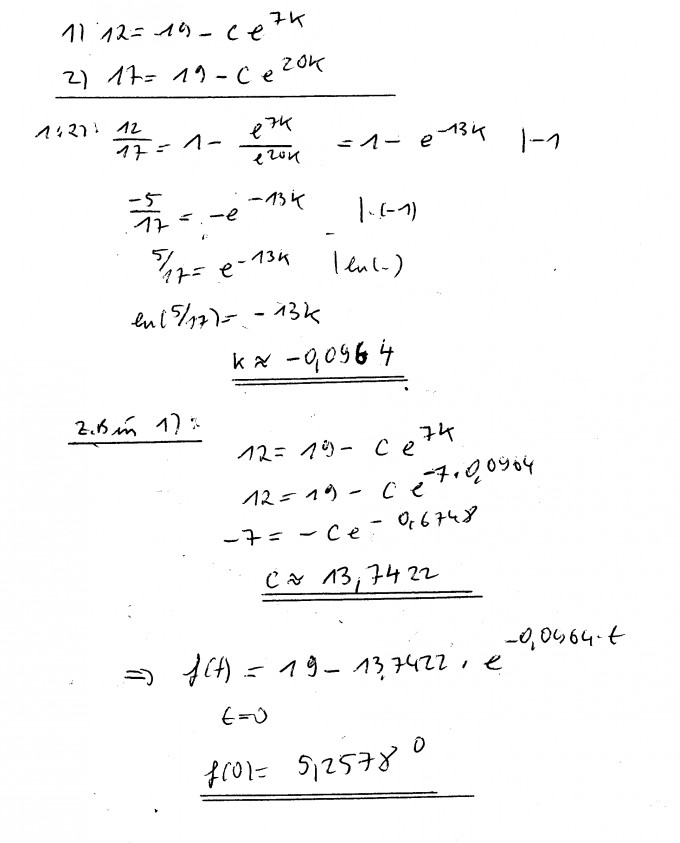 1) 12 = 19 - C e^7k
2) 17 = 19 - C e^20k
1:2): 12/17 = 1 - e^7k/e^20k = 1 - e^-13k |-1
-5/17 = -e^-13k |·(-1)
5/17 = e^-13k |ln(·)
ln(5/17) = -13k
k ≈ -0,0964
z.B in 1):
12 = 19 - C e^7k
12 = 19 - C e^-7·0,0964
-7 = -C e^-0,6748
C ≈ 13,7422
⇒ f(t) = 19 - 13,7422 · e^-0,0964·t
t=0
f(0) = 5,2578°